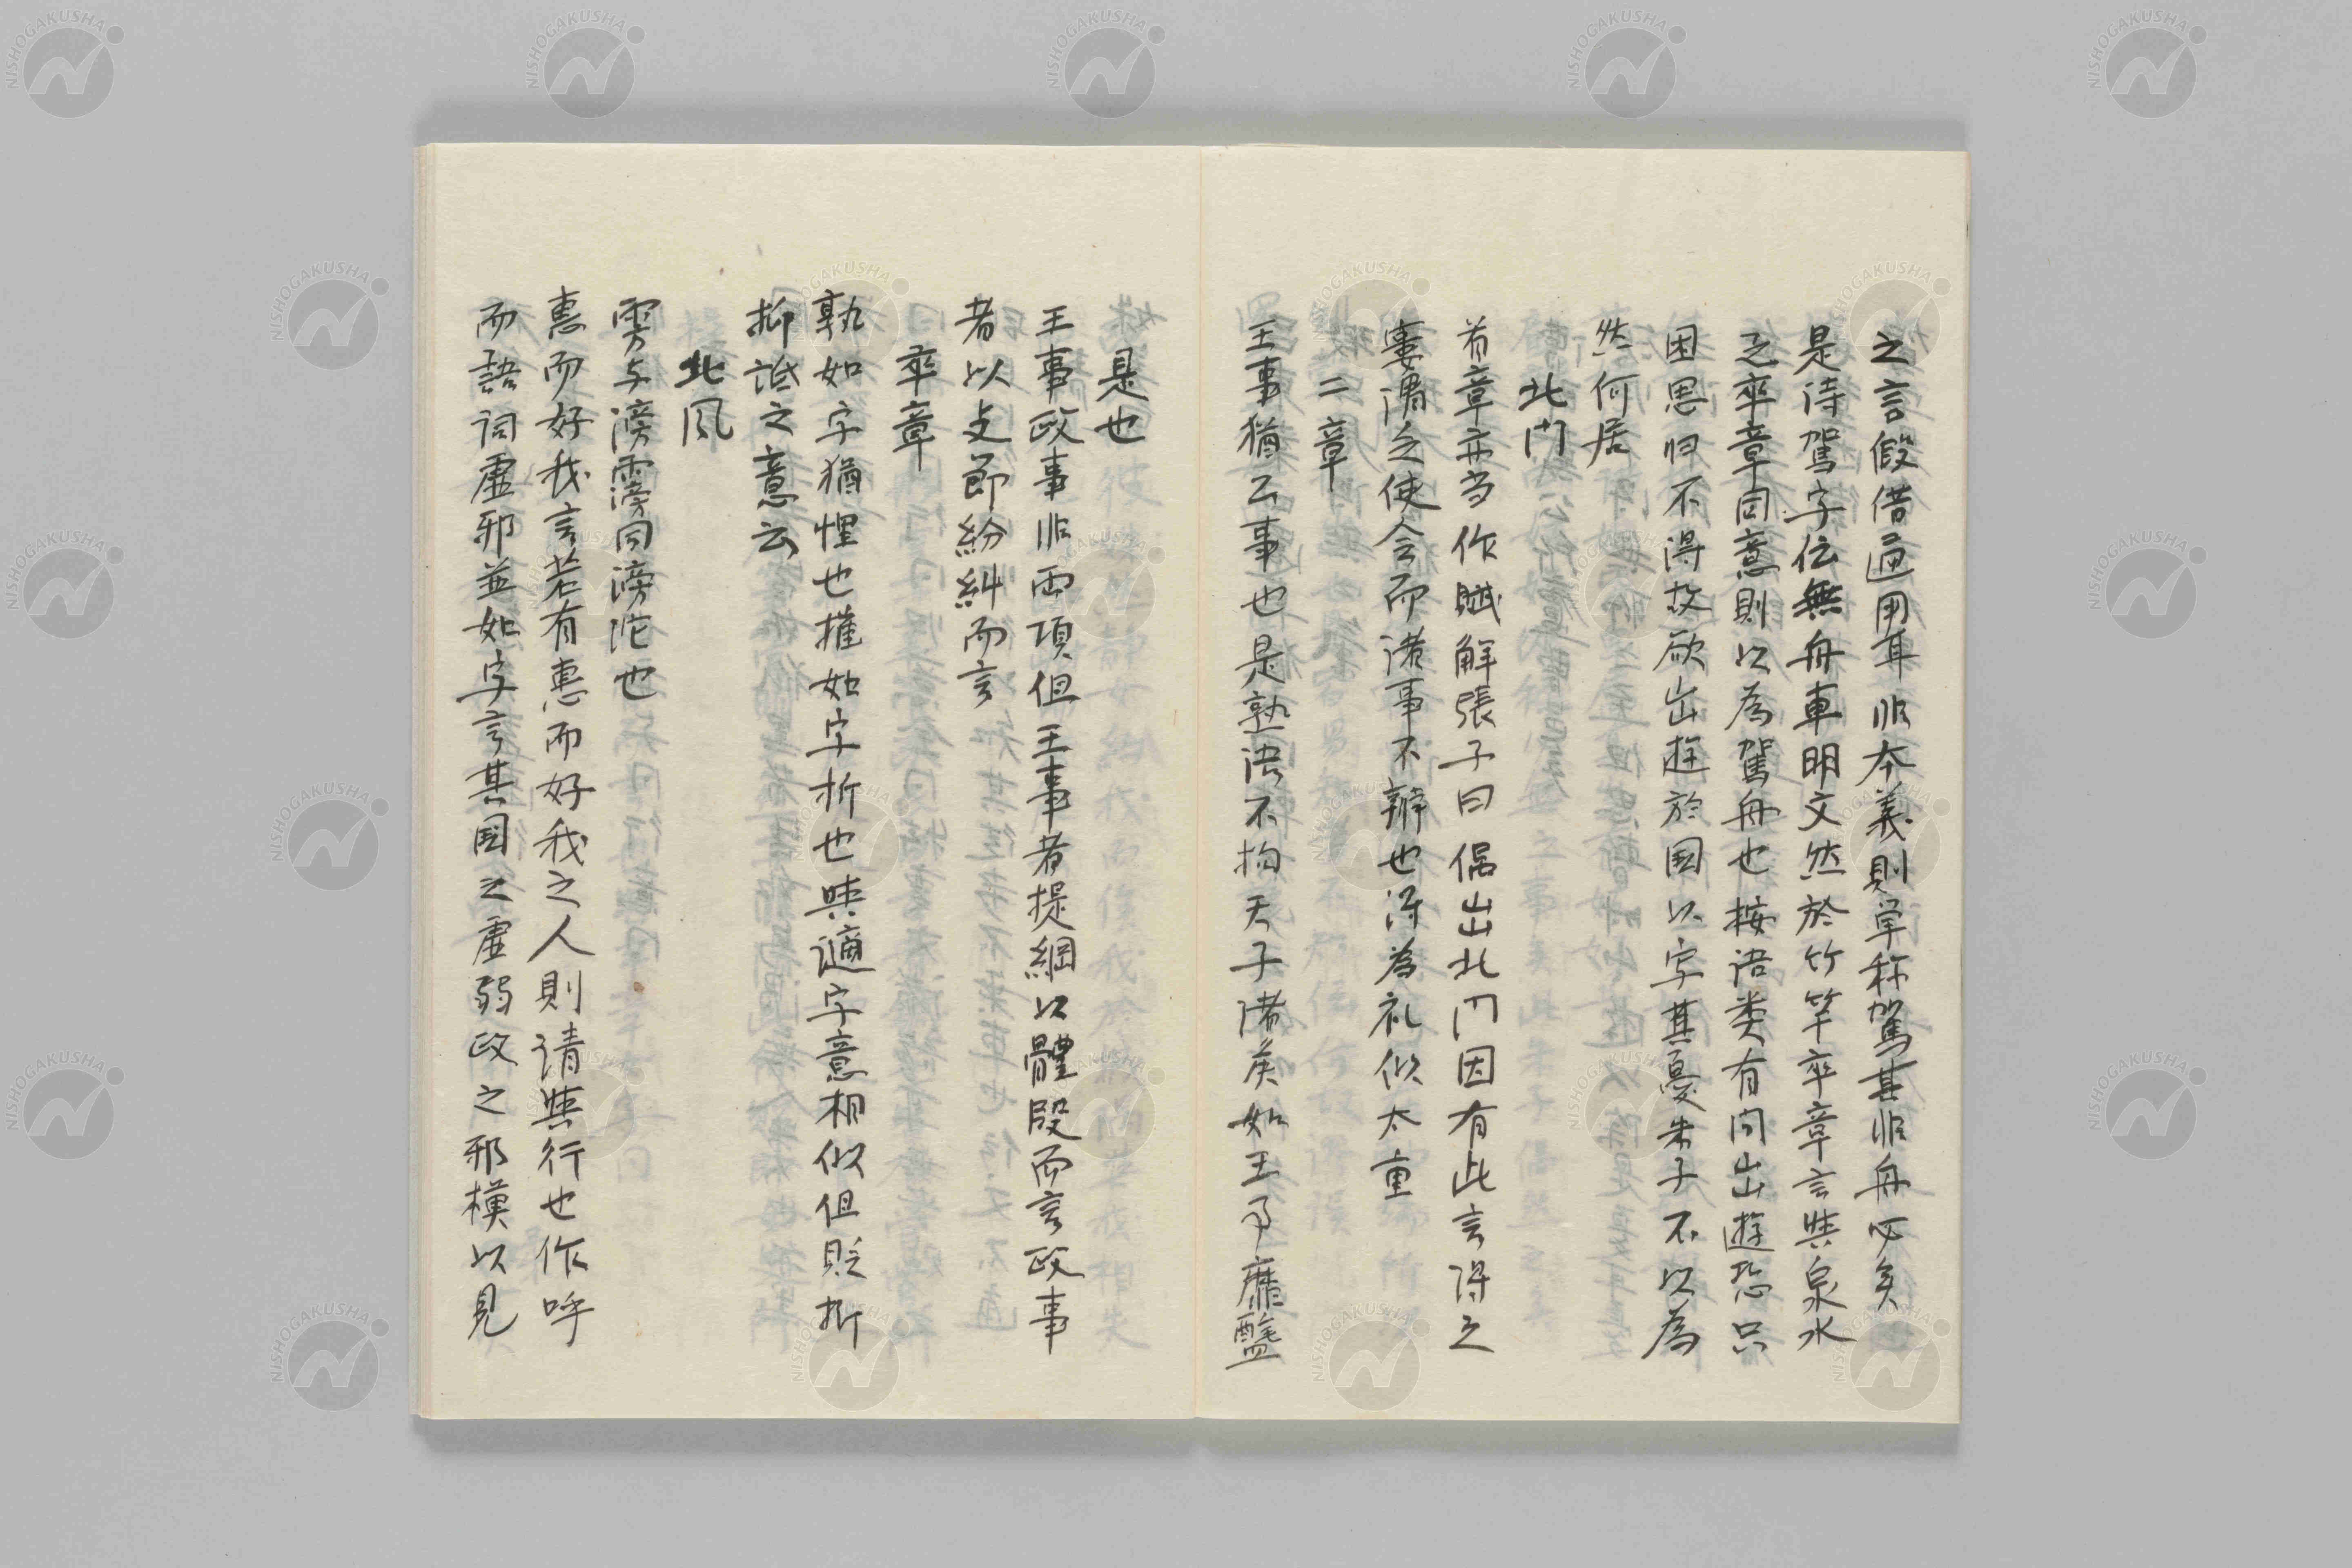 之言假借通用耳非本義則単称駕其非舟必矣
是待駕字伝無舟車明文然於竹竿卒章言與泉水
之卒章同意則以為駕舟也按语类有问出遊恐只
因思归不得故欲出遊於国以写其憂朱子不以為
然何居
北门
首章亦当作賦解張子曰偶出北门因有此言得之
窶谓乏使令而诸事不辨也浔為礼似太重
二章
王事猶云事也是熟语不拘天子诸矦如王事靡盬
是也
王事政事非両項但王事者提綱以體段而言政事
者以支節紛糾而言
卒章
孰如字猶惺也摧如字折也與讁字意相似但貶折
抑詆之意云
北风
雱与滂霶同滂沱也
惠而好我言若有惠而好我之人則请與行也作呼
而語词虚邪並如字言其国之虚弱政之邪模以見
NISHOGAKUSHA